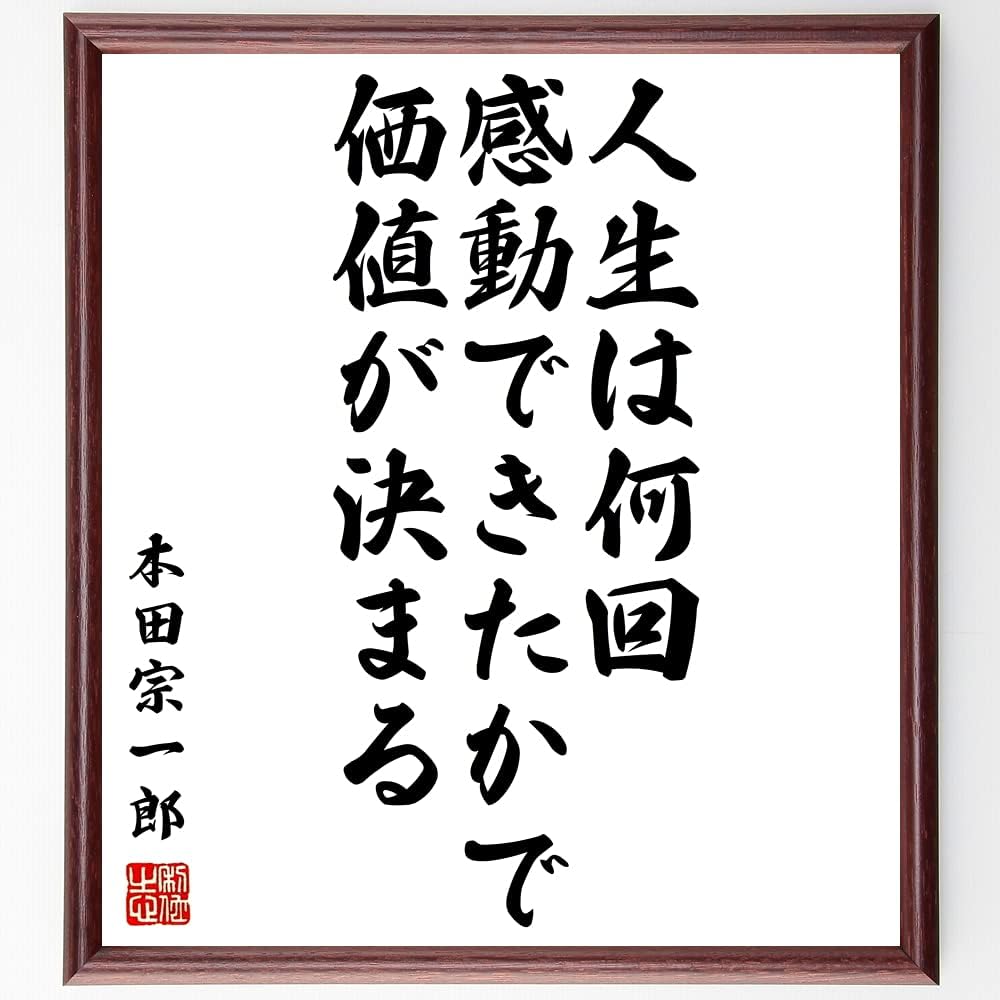 人生は何回
感動できたかで
価値が決まる
本田宗一郎